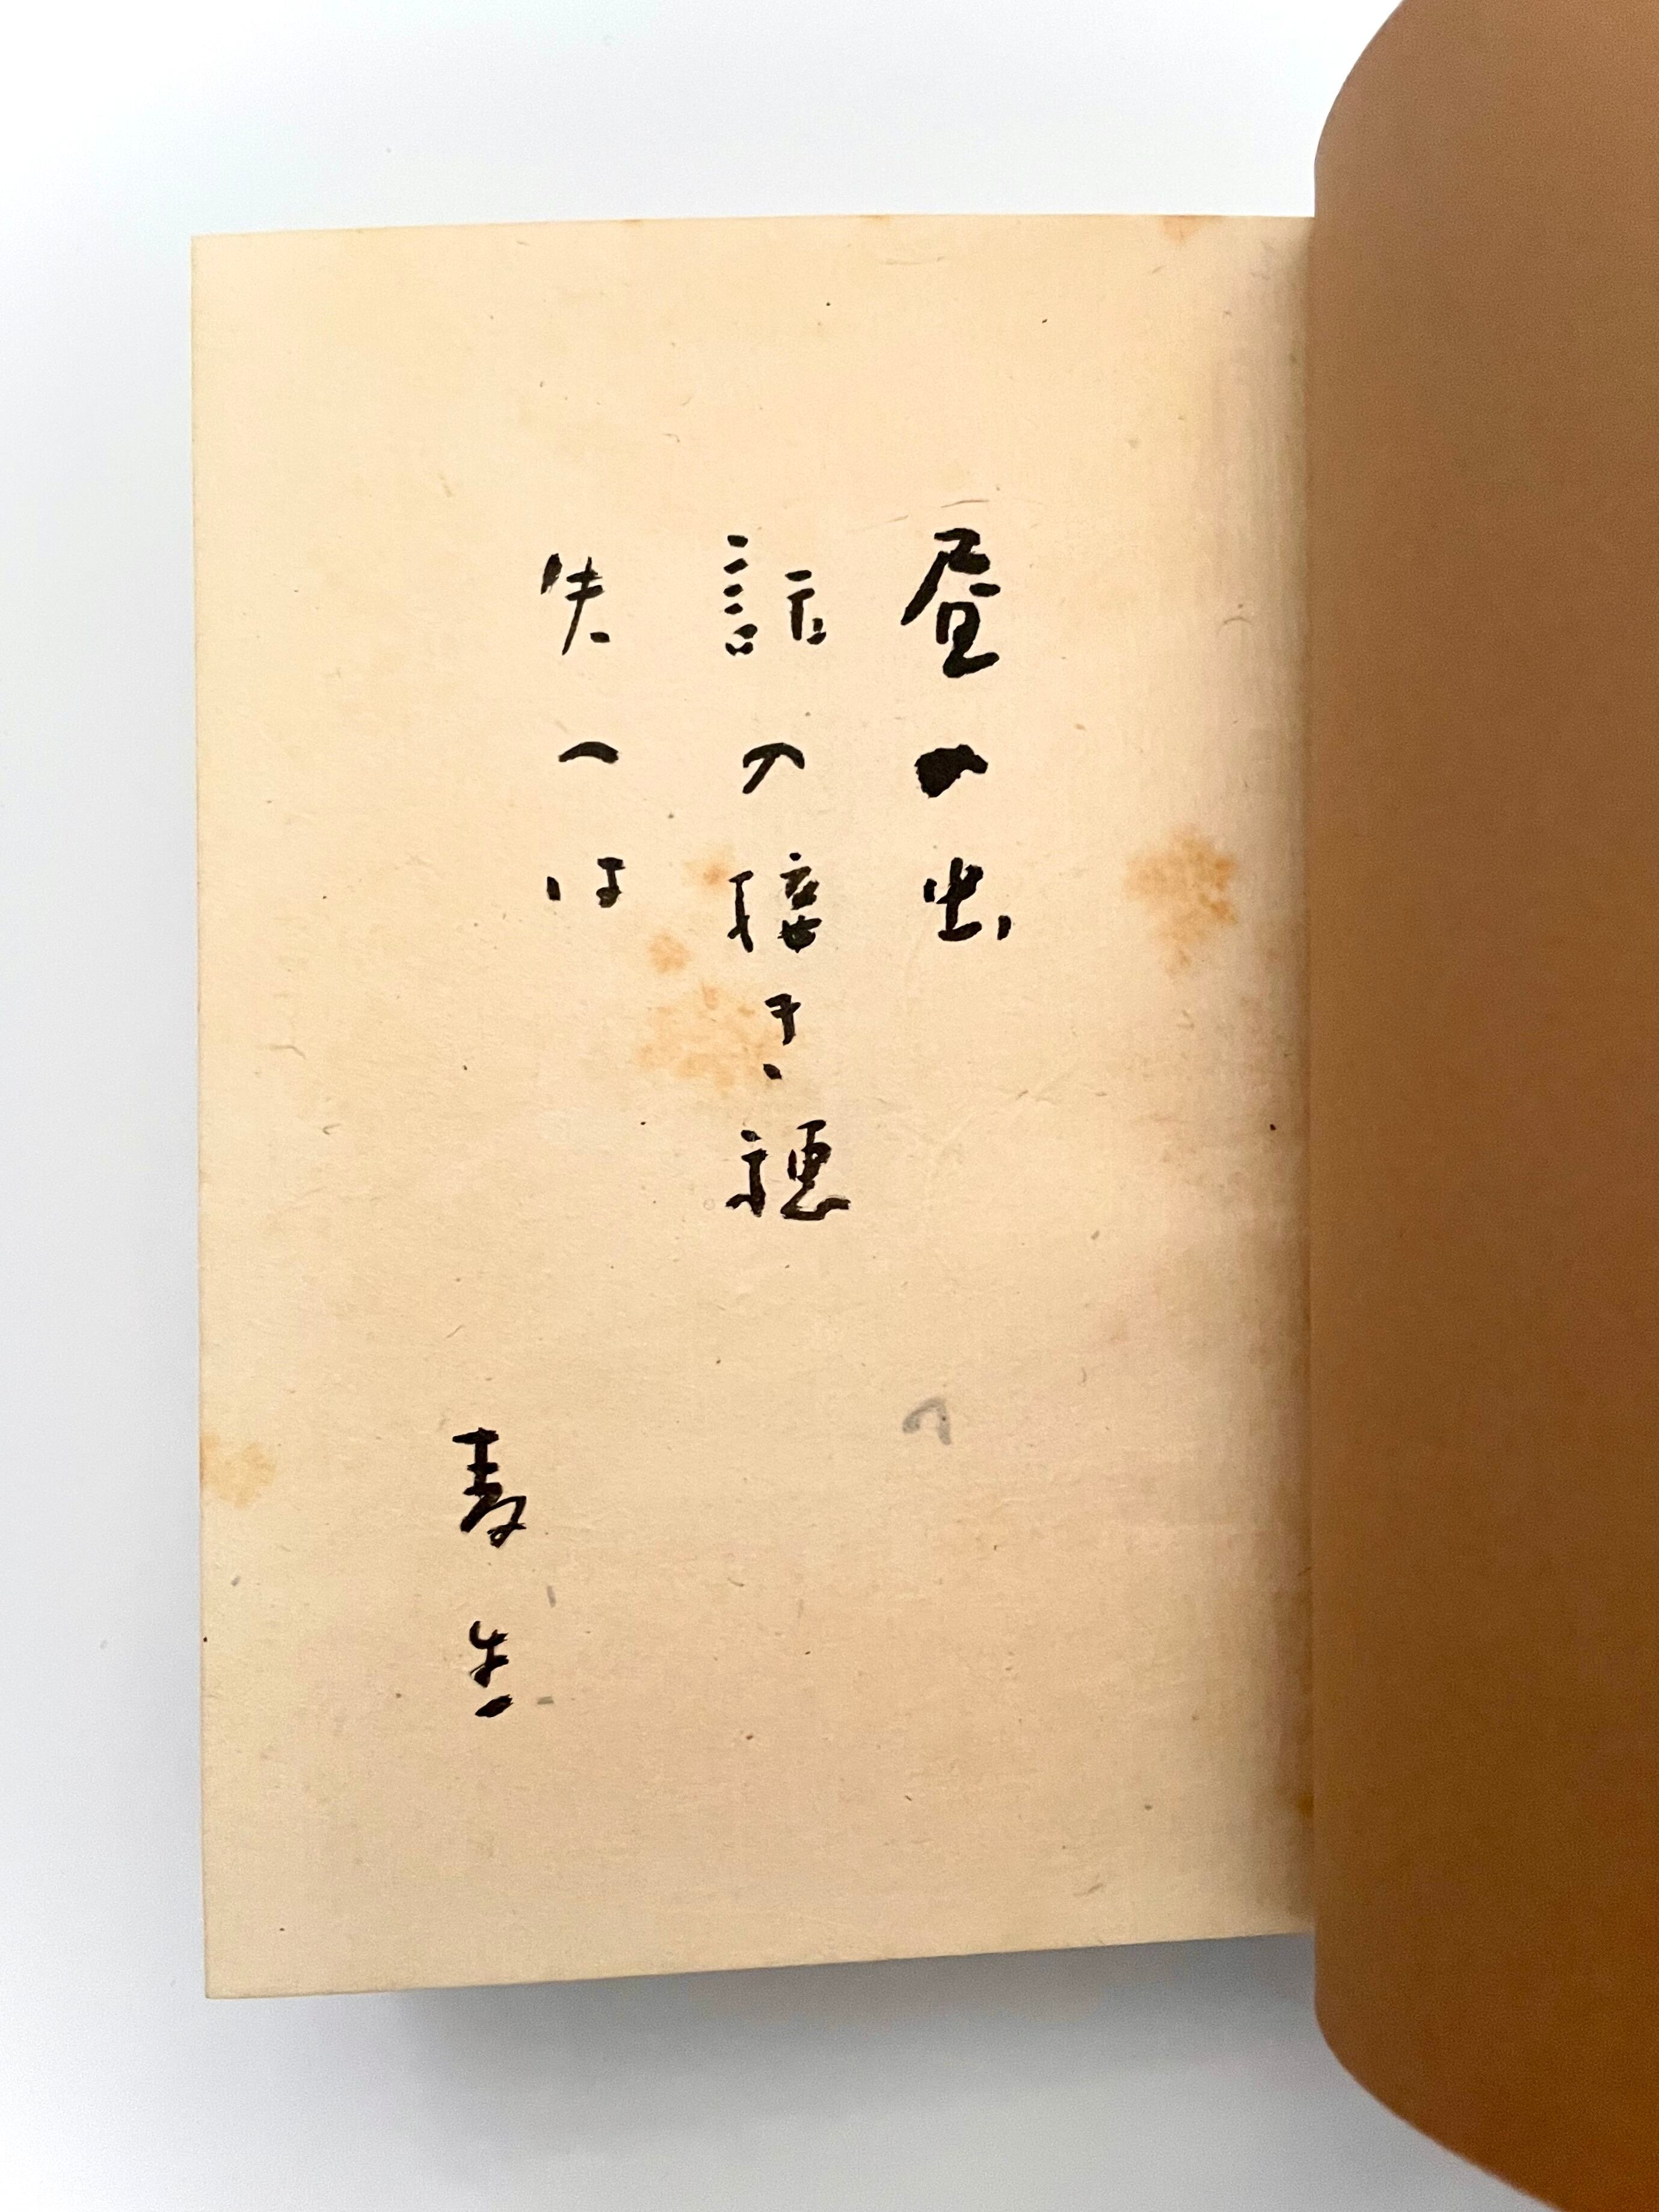 昼の虫
話の接き穂
失へは
麦生